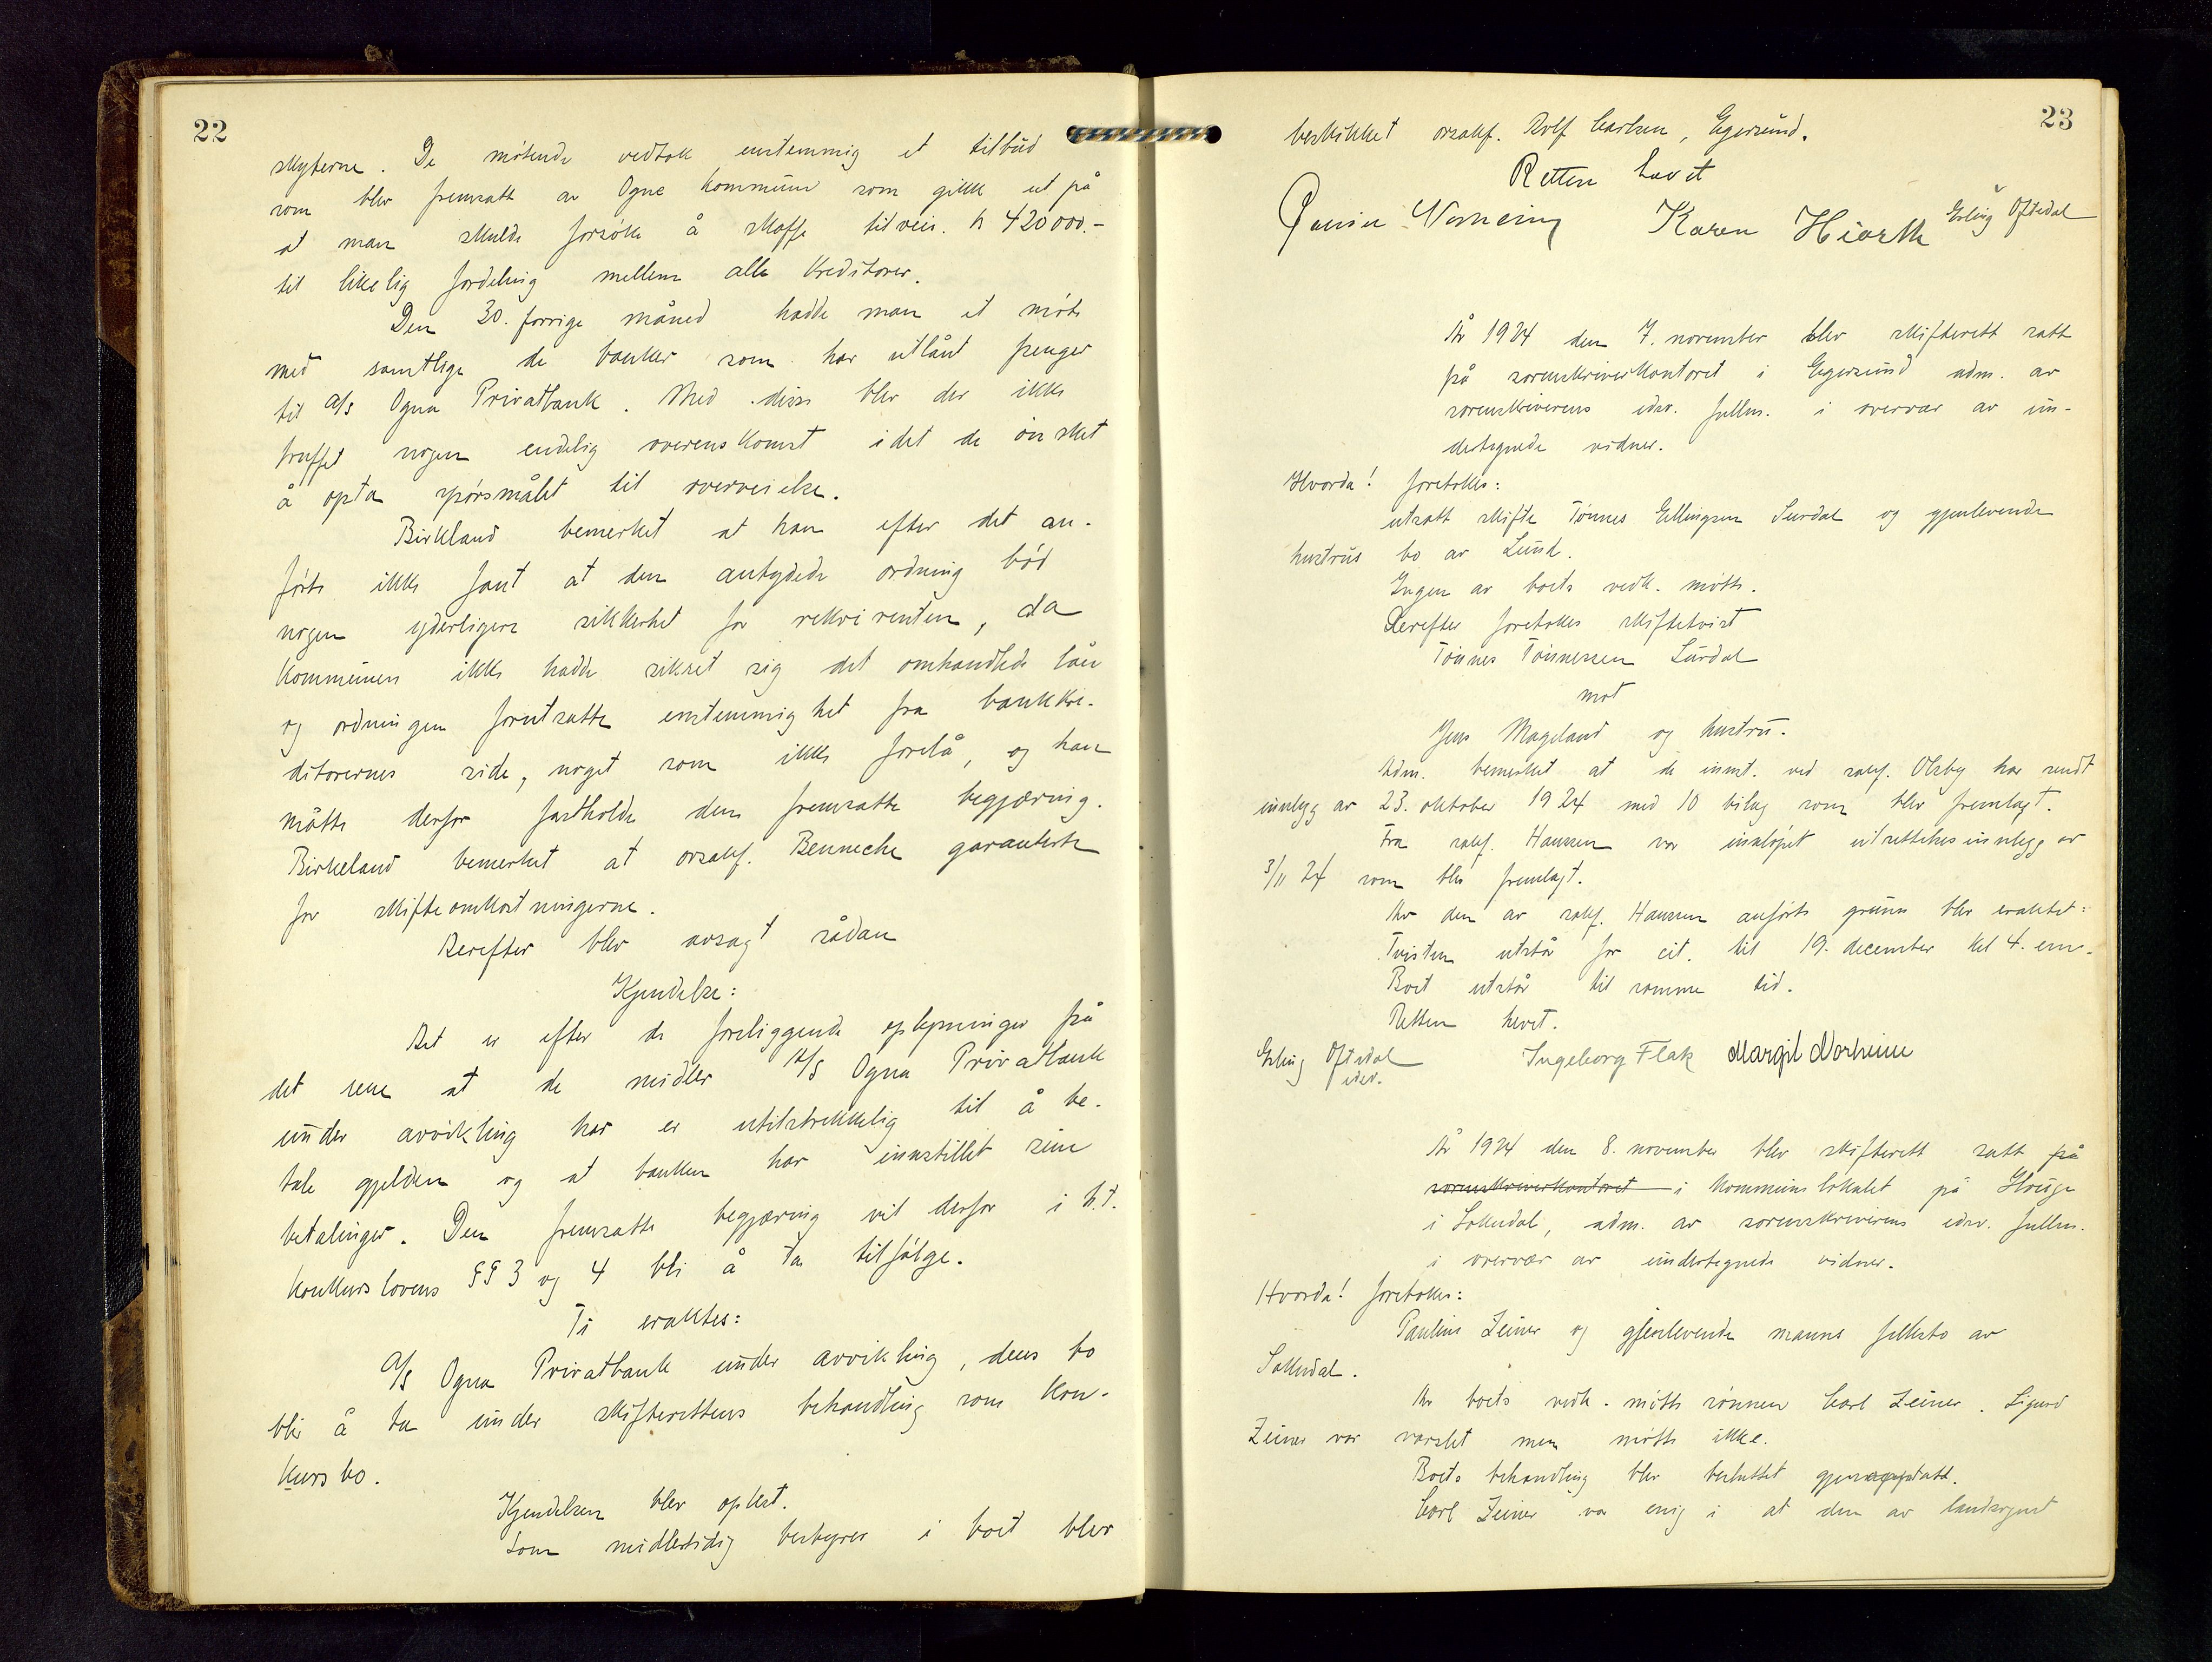 22
skyterne. De møtende vedtok enstemmig et tilbud
som blev fremsatt av Ogne kommune som gikk ut på
at man skulde forsøke å skaffe tilveie. kr 420000.-
til likelig fordeling mellem alle kreditorer.
Den 30. forrige måned hadde man et møte
med samtlige de banker som har utlånt penger
til A/S Ogna Privatbank. Med disse blev der ikke
truffet nogen endelig overenskomst idet de ønsket
å opta spørsmålet til overveielse.
Birkland bemerket at han efter det an-
førte ikke fant at den antydede ordning bød
nogen yderligere sikkerhet for rekvirenten, da
kommunen ikke hadde sikret sig det omhandlede lån
og ordningen forutsatte enstemmighet fra bankkre-
ditorernes side, noget som ikke forelå, og han
måtte derfor fastholde den fremsatte begjæring.
Birkeland bemerket at orsakf. Benneche garanterte
for skifteomkostningerne.
Derefter blev avsagt sådan
Kjendelse:
Det er efter de foreliggende oplysninger på
det rene at de midler A/S Ogna Privatbank
under avvikling har er utilstrekkelig til å be-
tale gjelden og at banken har innstillet sine
betalinger. Den fremsatte begjæring vil derfor i h.t.
konkurslovens §§ 3 og 4 bli å ta tilfølge.
Ti eraktes:
A/S Ogna Privatbank under avvikling, dens bo
blir å ta under skifterettens behandling som kon-
kursbo.
Kjendelsen blev oplest.
Som midlertidig bestyrer i boet blev
23
beskikket orsakf. Rolf Carlsen, Egersund.
Retten hevet
Karen Hiorth Erling Oftedal
År 1924 den 7. november blev skifterett satt
på sorenskriverkontoret i Egersund adm. av
sorenskriverens edsv. fullm. i overvær av un-
dertegnede vidner.
Hvorda! foretokes:
utsatt skifte Tønnes Ellingsen Surdal og gjenlevende
hustrus bo av Lund.
Ingen av boets vedk. møtte.
Derefter foretokes skiftetvist
Tønnes Tønnessen Surdal
mot
Jens Mageland og hustru.
Adm. bemerket at de innst. ved sakf. Olsby har sendt
innlegg av 23. oktober 1924 med 10 bilag som blev fremlagt.
Fra sakf. Hanssen var innløpet utsettelsesinnlegg av
3/11 24 som blev fremlagt.
Av den av sakf. Hanssen anførte grunn blev eraktet:
Tvisten utstår for cit. til 19. december kl 4. em.
Boet utstår til samme tid.
Retten hevet.
Erling Oftedal Ingeborg Flak Margil Norheim
edsv.
År 1924 den 8. november blev skifterett satt på
sorenskriverkontoret i kommunelokalet på Hauge
i Sokndal, adm. av sorenskriverens edsv. fullm.
i overvær av undertegnede vidner.
Hvorda! foretokes:
Pauline Zeiner og gjenlevende manns fellesbo av
Sokndal.
Av boets vedk. møtte sønnen Carl Zeiner. Sigurd
Zeiner var varslet men møtte ikke.
Boets behandling blev besluttet gjenopptatt.
Carl Zeiner var enig i at den av landsognet